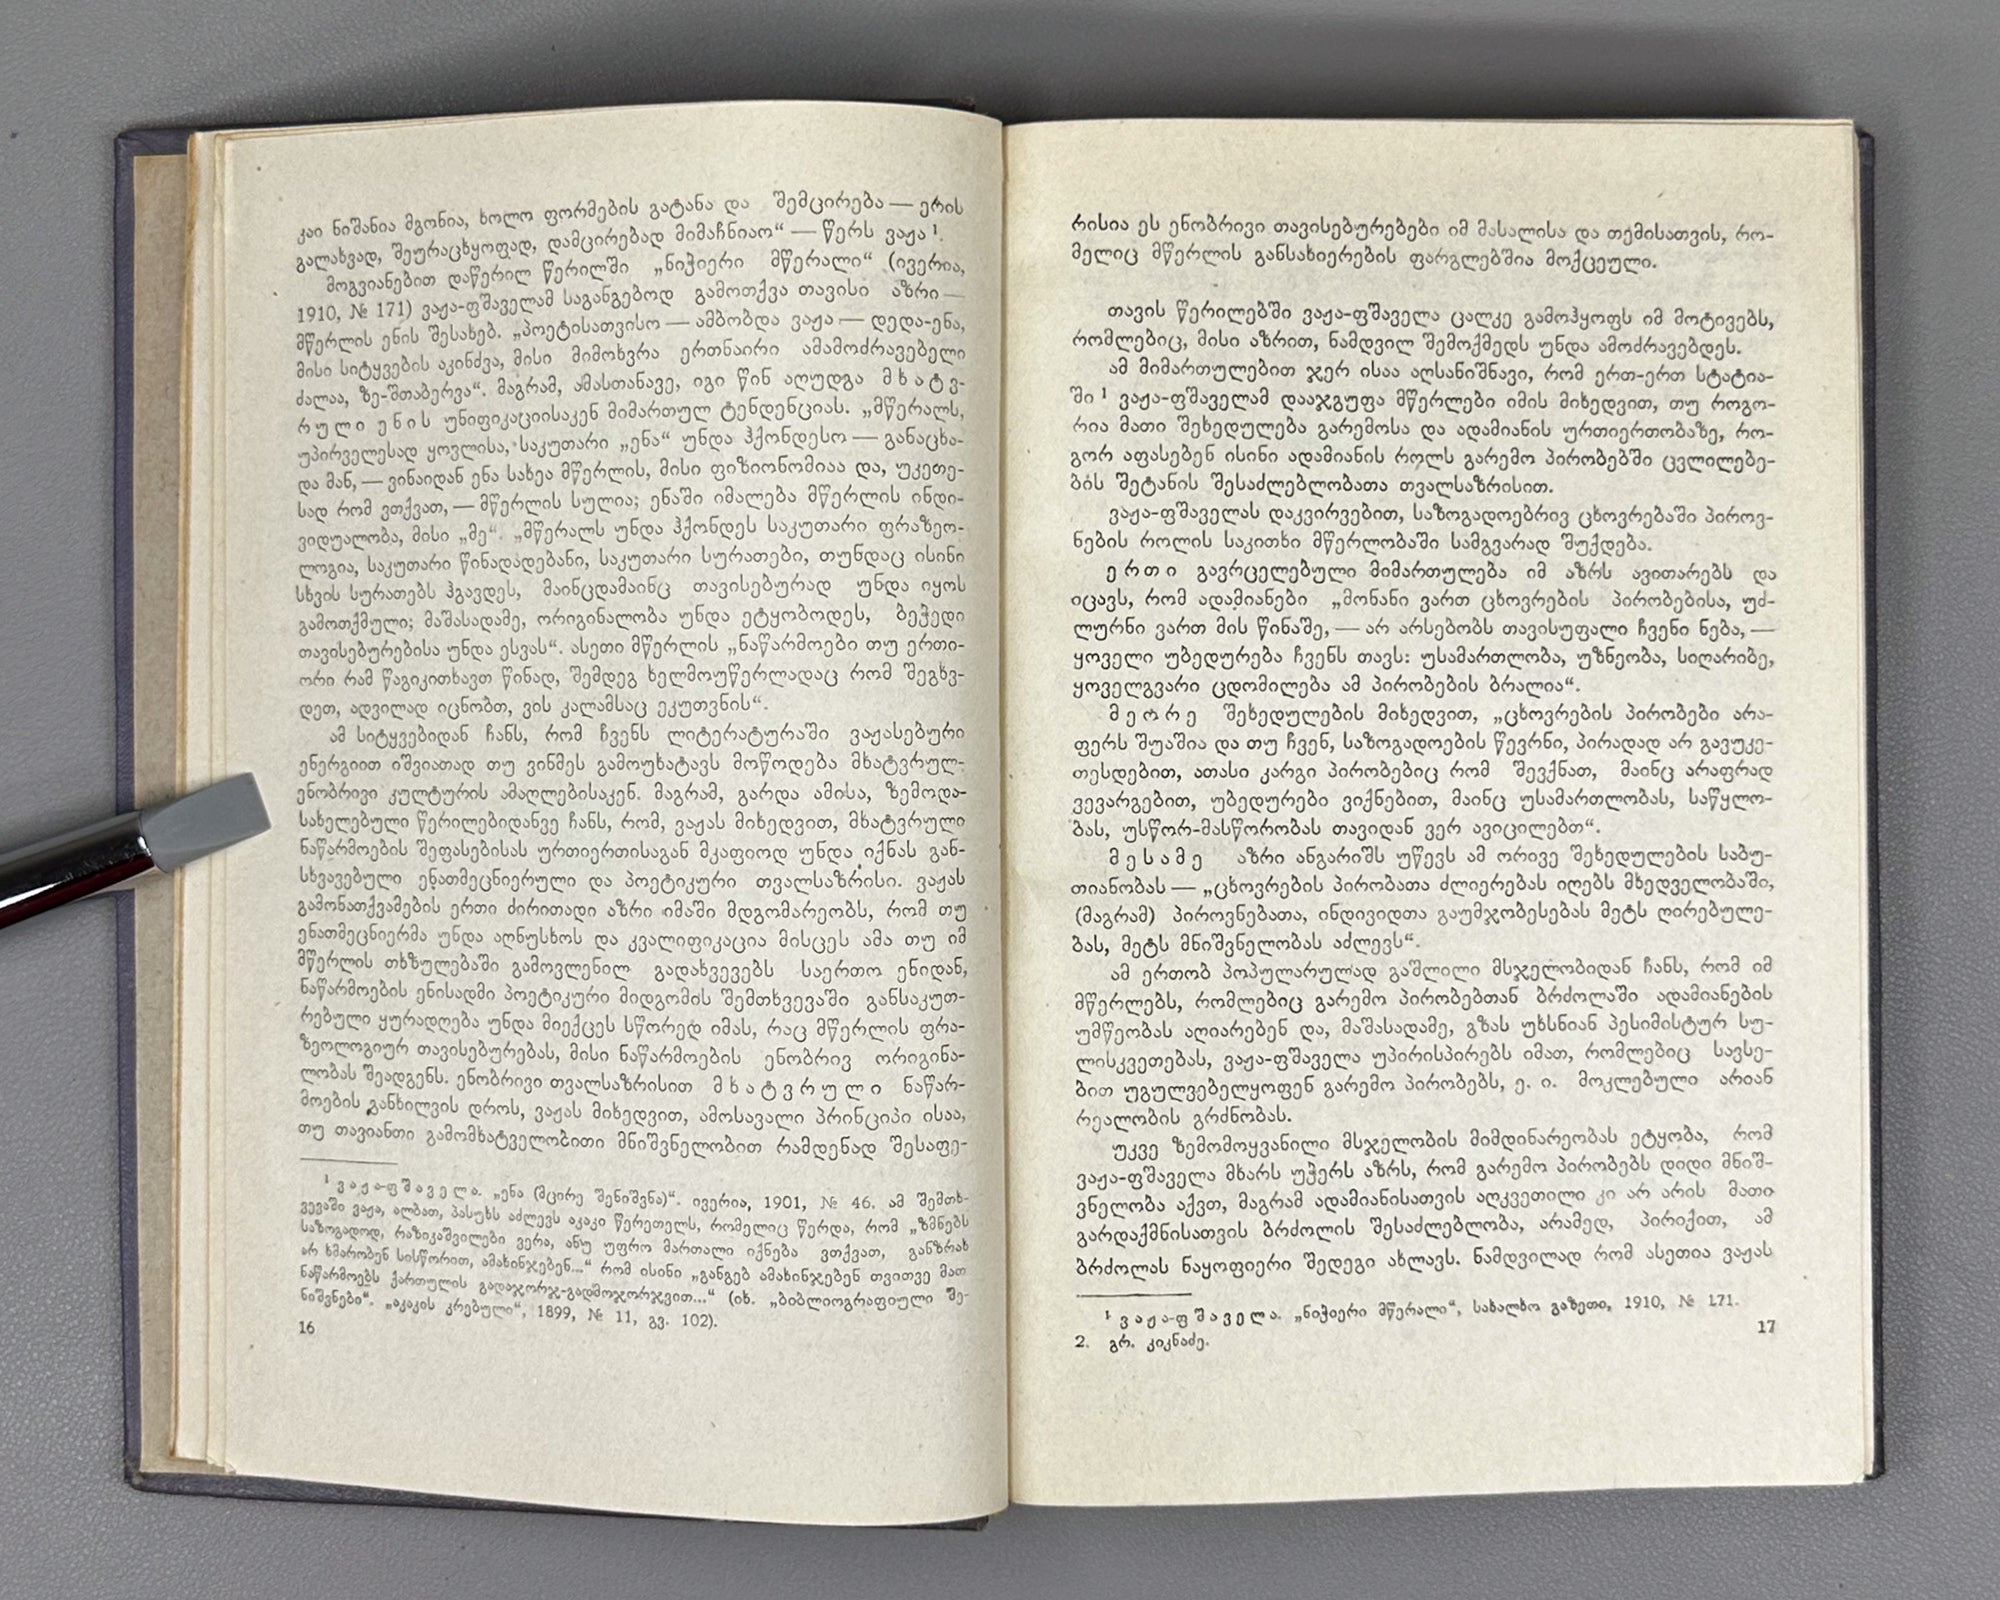 კაი ნიშანია მგონია, ხოლო ფორმების გატანა და შემცირება — ერის
გალახვად, შეურაცხყოფად, დამცირებად მიმაჩნიაო“ — წერს ვაჟა ¹.
მოგვიანებით დაწერილ წერილში „ნიჭიერი მწერალი“ (ივერია,
1910, № 171) ვაჟა-ფშაველამ საგანგებოდ გამოთქვა თავისი აზრი —
მწერლის ენის შესახებ. „პოეტისათვისო — ამბობდა ვაჟა — დედა-ენა,
მისი სიტყვების აკინძვა, მისი მიმოხვრა ერთნაირი ამამოძრავებელი
ძალაა, ზე-შთაბერვა“. მაგრამ, ამასთანავე, იგი წინ აღუდგა მხატვ-
რული ენის უნიფიკაციისაკენ მიმართულ ტენდენციას. „მწერალს,
უპირველესად ყოვლისა, საკუთარი „ენა“ უნდა ჰქონდესო — განაცხა-
და მან, — ვინაიდან ენა სახეა მწერლის, მისი ფიზიონომიაა და, უკეთე-
სად რომ ვთქვათ, — მწერლის სულია; ენაში იმალება მწერლის ინდი-
ვიდუალობა, მისი „მე“. „მწერალს უნდა ჰქონდეს საკუთარი ფრაზეო-
ლოგია, საკუთარი წინადადებანი, საკუთარი სურათები, თუნდაც ისინი
სხვის სურათებს ჰგავდეს, მაინცდამაინც თავისებურად უნდა იყოს
გამოთქმული; მაშასადამე, ორიგინალობა უნდა ეტყობოდეს, ბეჭედი
თავისებურებისა უნდა ესვას“. ასეთი მწერლის „ნაწარმოები თუ ერთი-
ორი რამ წაგიკითხავთ წინად, შემდეგ ხელმოუწერლადაც რომ შეგხვ-
დეთ, ადვილად იცნობთ, ვის კალამსაც ეკუთვნის“.
ამ სიტყვებიდან ჩანს, რომ ჩვენს ლიტერატურაში ვაჟასებური
ენერგიით იშვიათად თუ ვინმეს გამოუხატავს მოწოდება მხატვრულ-
ენობრივი კულტურის ამაღლებისაკენ. მაგრამ, გარდა ამისა, ზემოდა-
სახელებული წერილებიდანვე ჩანს, რომ, ვაჟას მიხედვით, მხატვრული
ნაწარმოების შეფასებისას ურთიერთისაგან მკაფიოდ უნდა იქნას გან-
სხვავებული ენათმეცნიერული და პოეტიკური თვალსაზრისი. ვაჟას
გამონათქვამების ერთი ძირითადი აზრი იმაში მდგომარეობს, რომ თუ
ენათმეცნიერმა უნდა აღნუსხოს და კვალიფიკაცია მისცეს ამა თუ იმ
მწერლის თხზულებაში გამოვლენილ გადახვევებს საერთო ენიდან,
ნაწარმოების ენისადმი პოეტიკური მიდგომის შემთხვევაში განსაკუთ-
რებული ყურადღება უნდა მიექცეს სწორედ იმას, რაც მწერლის ფრა-
ზეოლოგიურ თავისებურებას, მისი ნაწარმოების ენობრივ ორიგინა-
ლობას შეადგენს. ენობრივი თვალსაზრისით მხატვრული ნაწარ-
მოების განხილვის დროს, ვაჟას მიხედვით, ამოსავალი პრინციპი ისაა,
თუ თავიანთი გამომხატველობითი მნიშვნელობით რამდენად შესაფე-
¹ ვაჟა-ფშაველა. „ენა (მცირე შენიშვნა)“. ივერია, 1901, № 46. ამ შემთხ-
ვევაში ვაჟა, ალბათ, პასუხს აძლევს აკაკი წერეთელს, რომელიც წერდა, რომ „ზმნებს
საზოგადოდ, რაზიკაშვილები ვერა, ანუ უფრო მართალი იქნება ვთქვათ, განზრახ
არ ხმარობენ სისწორით, ამახინჯებენ...“ რომ ისინი „განგებ ამახინჯებენ თვითვე მათ
ნაწარმოებს ქართულის გადაჯორჯ-გადმოჯორჯვით...“ (იხ. „ბიბლიოგრაფიული შე-
ნიშვნები“. „აკაკის კრებული“, 1899, № 11, გვ. 102).
16
რისია ეს ენობრივი თავისებურებები იმ მასალისა და თემისათვის, რო-
მელიც მწერლის განსახიერების ფარგლებშია მოქცეული.
თავის წერილებში ვაჟა-ფშაველა ცალკე გამოჰყოფს იმ მოტივებს,
რომლებიც, მისი აზრით, ნამდვილ შემოქმედს უნდა ამოძრავებდეს.
ამ მიმართულებით ჯერ ისაა აღსანიშნავი, რომ ერთ-ერთ სტატია-
ში ¹ ვაჟა-ფშაველამ დააჯგუფა მწერლები იმის მიხედვით, თუ როგო-
რია მათი შეხედულება გარემოსა და ადამიანის ურთიერთობაზე, რო-
გორ აფასებენ ისინი ადამიანის როლს გარემო პირობებში ცვლილებე-
ბის შეტანის შესაძლებლობათა თვალსაზრისით.
ვაჟა-ფშაველას დაკვირვებით, საზოგადოებრივ ცხოვრებაში პიროვ-
ნების როლის საკითხი მწერლობაში სამგვარად შუქდება.
ერთი გავრცელებული მიმართულება იმ აზრს ავითარებს და
იცავს, რომ ადამიანები „მონანი ვართ ცხოვრების პირობებისა, უძ-
ლურნი ვართ მის წინაშე, — არ არსებობს თავისუფალი ჩვენი ნება, —
ყოველი უბედურება ჩვენს თავს: უსამართლობა, უზნეობა, სიღარიბე,
ყოველგვარი ცდომილება ამ პირობების ბრალია“.
მეორე შეხედულების მიხედვით, „ცხოვრების პირობები არა-
ფერს შუაშია და თუ ჩვენ, საზოგადოების წევრნი, პირადად არ გავუკე-
თესდებით, ათასი კარგი პირობებიც რომ შევქნათ, მაინც არაფრად
ვევარგებით, უბედურები ვიქნებით, მაინც უსამართლობას, საწყლო-
ბას, უსწორ-მასწორობას თავიდან ვერ ავიცილებთ“.
მესამე აზრი ანგარიშს უწევს ამ ორივე შეხედულების საბუ-
თიანობას — „ცხოვრების პირობათა ძლიერებას იღებს მხედველობაში,
(მაგრამ) პიროვნებათა, ინდივიდთა გაუმჯობესებას მეტს ღირებულე-
ბას, მეტს მნიშვნელობას აძლევს“.
ამ ერთობ პოპულარულად გაშლილი მსჯელობიდან ჩანს, რომ იმ
მწერლებს, რომლებიც გარემო პირობებთან ბრძოლაში ადამიანების
უმწეობას აღიარებენ და, მაშასადამე, გზას უხსნიან პესიმისტურ სუ-
ლისკვეთებას, ვაჟა-ფშაველა უპირისპირებს იმათ, რომლებიც სავსე-
ბით უგულვებელყოფენ გარემო პირობებს, ე. ი. მოკლებული არიან
რეალობის გრძნობას.
უკვე ზემომოყვანილი მსჯელობის მიმდინარეობას ეტყობა, რომ
ვაჟა-ფშაველა მხარს უჭერს აზრს, რომ გარემო პირობებს დიდი მნიშ-
ვნელობა აქვთ, მაგრამ ადამიანისათვის აღკვეთილი კი არ არის მათი
გარდაქმნისათვის ბრძოლის შესაძლებლობა, არამედ, პირიქით, ამ
ბრძოლას ნაყოფიერი შედეგი ახლავს. ნამდვილად რომ ასეთია ვაჟას
¹ ვაჟა-ფშაველა. „ნიჭიერი მწერალი“, სახალხო გაზეთი, 1910, № 171.
2. გრ. კიკნაძე.
17